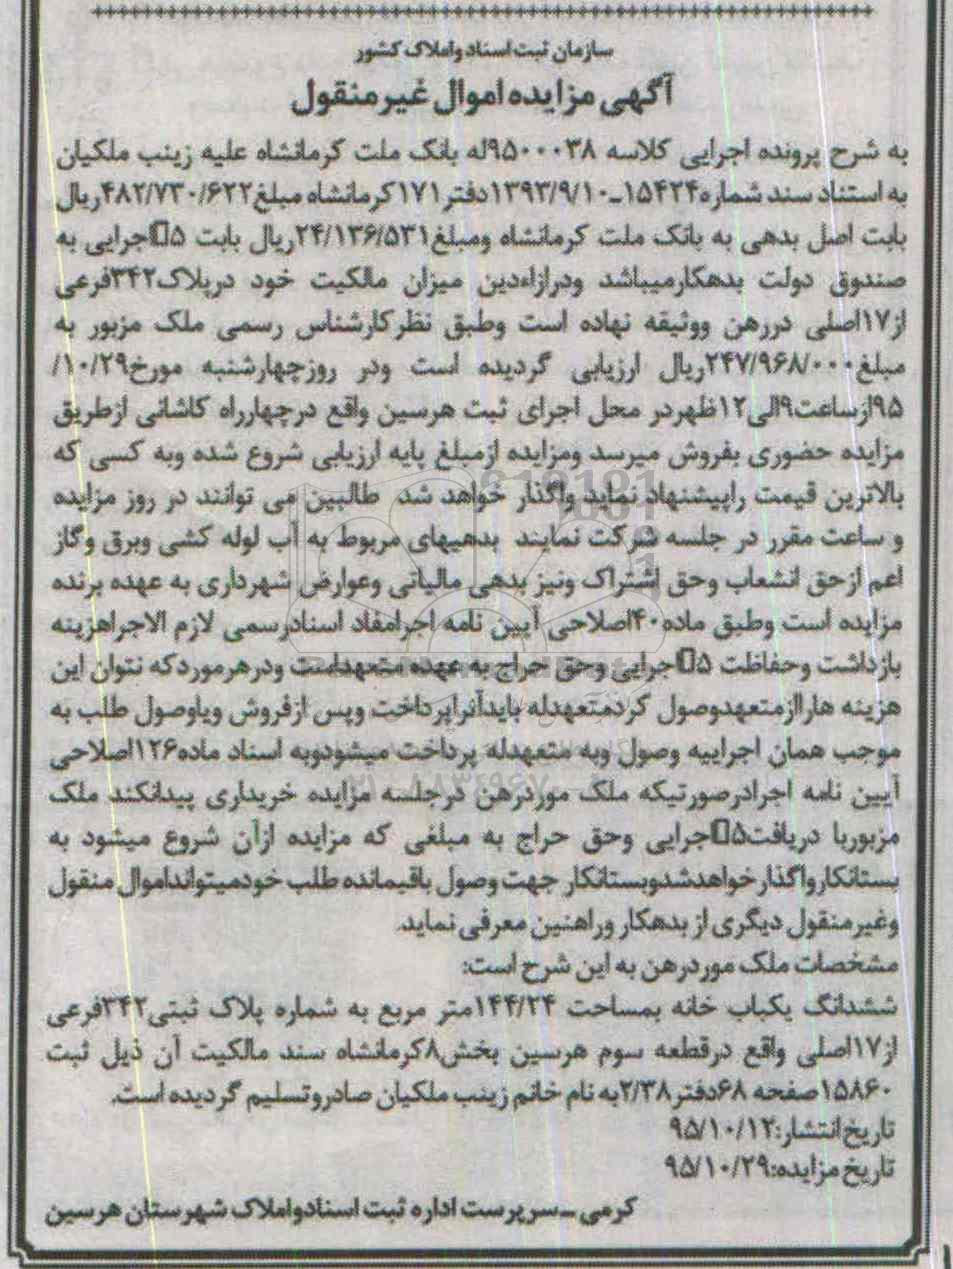 سازمان ثبت اسناد واملاک کشور
آگهی مزایده اموال غیر منقول
به شرح پرونده اجرایی کلاسه ۹۵۰۰۰۳۸له بانک ملت کرمانشاه علیه زینب ملکیان
به استناد سند شماره۱۵۴۲۴ـ۱۳۹۳/۹/۱۰دفتر۱۷۱کرمانشاه مبلغ۴۸۲/۷۳۰/۶۲۲ریال
بابت اصل بدهی به بانک ملت کرمانشاه ومبلغ۲۴/۱۳۶/۵۳۱ریال بابت ۵اجرایی به
صندوق دولت بدهکارمیباشد ودرازاءدین میزان مالکیت خود درپلاک۳۴۲فرعی
از۱۷اصلی دررهن ووثیقه نهاده است وطبق نظرکارشناس رسمی ملک مزبور به
مبلغ۲۴۷/۹۶۸/۰۰۰ریال ارزیابی گردیده است ودر روزچهارشنبه مورخ۱۰/۲۹/
۹۵ازساعت۹الی۱۲ظهردر محل اجرای ثبت هرسین واقع درچهارراه کاشانی ازطریق
مزایده حضوری بفروش میرسد ومزایده ازمبلغ پایه ارزیابی شروع شده وبه کسی که
بالاترین قیمت راپیشنهاد نماید واگذار خواهد شد طالبین می توانند در روز مزایده
و ساعت مقرر در جلسه شرکت نمایند بدهیهای مربوط به آب لوله کشی وبرق وگاز
اعم ازحق انشعاب وحق اشتراک ونیز بدهی مالیاتی وعوارض شهرداری به عهده برنده
مزایده است وطبق ماده۴۰اصلاحی آیین نامه اجرامفاد اسنادرسمی لازم الاجراهزینه
بازداشت وحفاظت ۵اجرایی وحق حراج به عهده متعهداست ودرهرموردکه نتوان این
هزینه هاراازمتعهدوصول کردمتعهدله بایدآنراپرداخت وپس ازفروش ویاوصول طلب به
موجب همان اجراییه وصول وبه متعهدله پرداخت میشودوبه اسناد ماده۱۲۶اصلاحی
آیین نامه اجرادرصورتیکه ملک موردرهن درجلسه مزایده خریداری پیدانکند ملک
مزبوربا دریافت۵اجرایی وحق حراج به مبلغی که مزایده ازآن شروع میشود به
بستانکارواگذارخواهدشدوبستانکار جهت وصول باقیمانده طلب خودمیتوانداموال منقول
وغیرمنقول دیگری از بدهکار وراهنین معرفی نماید.
مشخصات ملک موردرهن به این شرح است:
ششدانگ یکباب خانه بمساحت ۱۴۴/۲۴متر مربع به شماره پلاک ثبتی۳۴۲فرعی
از۱۷اصلی واقع درقطعه سوم هرسین بخش۸کرمانشاه سند مالکیت آن ذیل ثبت
۱۵۸۶۰صفحه ۶۸دفتر۲/۳۸به نام خانم زینب ملکیان صادروتسلیم گردیده است.
تاریخ انتشار:۹۵/۱۰/۱۲
تاریخ مزایده:۹۵/۱۰/۲۹
کرمی ـ سرپرست اداره ثبت اسنادواملاک شهرستان هرسین